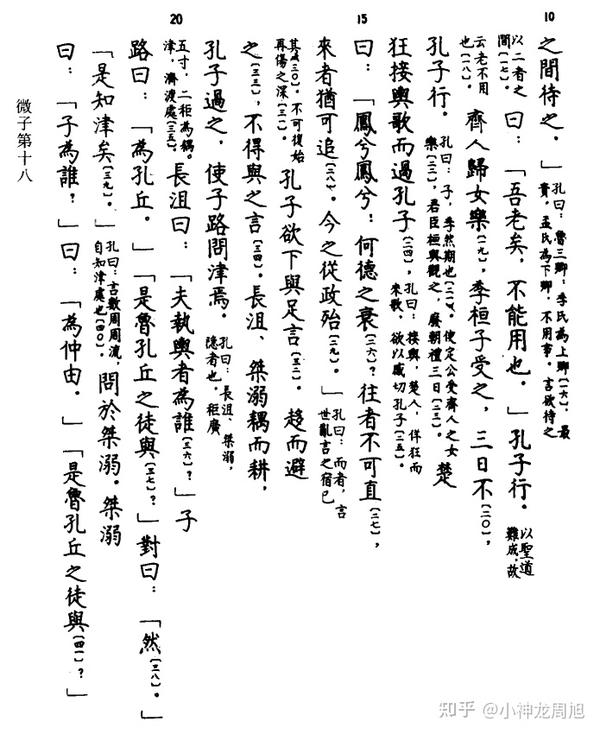 10
之間待之。」孔曰：魯三卿：季氏為上卿〔一六〕，最貴，孟氏為下卿，不用事。言欲待之
以二者之間〔一七〕。曰：「吾老矣，不能用也。」孔子行。以聖道難成，故
云老不用也〔一八〕。齊人歸女樂〔一九〕，季桓子受之，三日不〔二〇〕，
孔子行。孔曰：子，季然期也〔二一〕。使定公受齊人之女樂〔二二〕，君臣桓與觀之，廢朝禮三日〔二三〕。楚
狂接輿歌而過孔子〔二四〕，孔曰：接輿，楚人，佯狂而來歌，欲以感切孔子〔二五〕。
15
曰：「鳳兮鳳兮：何德之衰〔二六〕？往者不可直〔二七〕，
來者猶可追〔二八〕。今之從政殆〔二九〕。」孔曰：而者，言世亂言之宿已
其減〔三〇〕，不可復始再傷之深〔三一〕。孔子欲下與足言〔三二〕。趍而避
之〔三三〕，不得與之言〔三四〕。長沮、桀溺耦而耕，
孔子過之，使子路問津焉。孔曰：長沮、桀溺，隱者也。秬廣
20
五寸，二秬為耦。津，濟渡處〔三五〕。長沮曰：「夫執輿者為誰〔三六〕？」子
路曰：「為孔丘。」「是魯孔丘之徒與〔三七〕？」對曰：「然〔三八〕。」
「是知津矣〔三九〕。」孔曰：言數周周流，自知津處也〔四〇〕。問於桀溺。桀溺
曰：「子為誰？」曰：「為仲由。」「是魯孔丘之徒與〔四一〕？」
微子第十八
知乎 @小神龙周旭